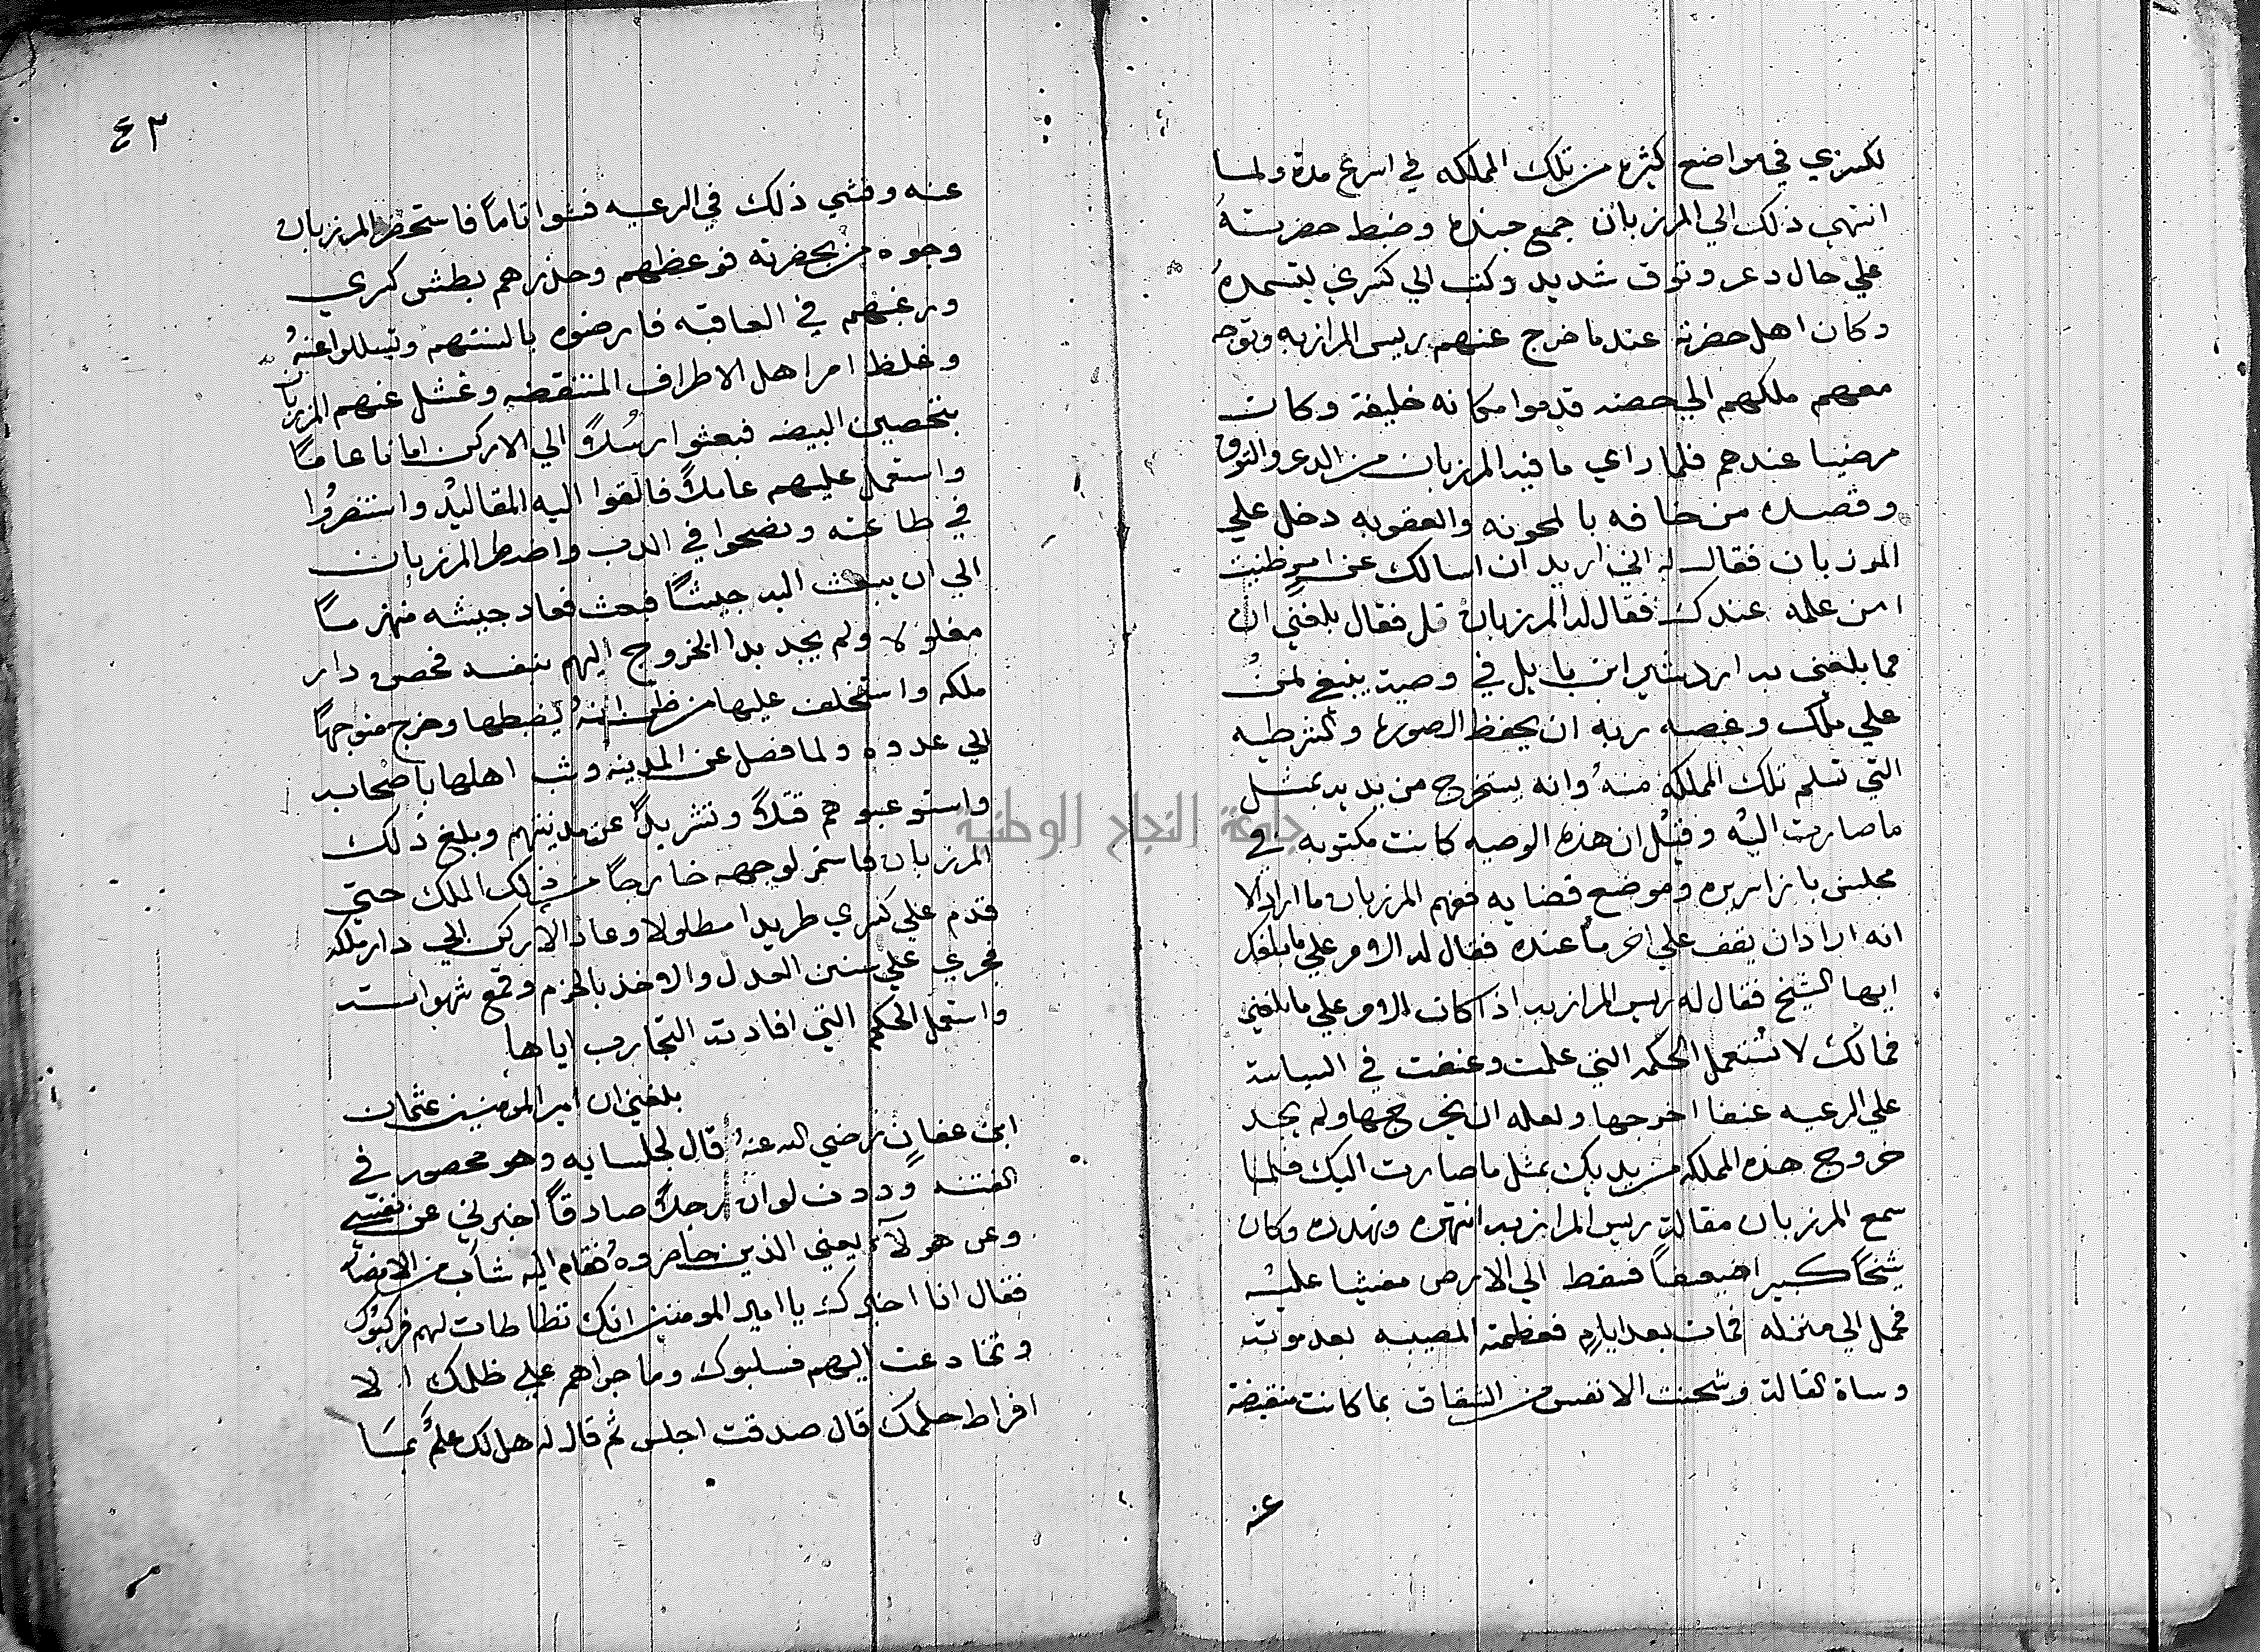 لكسري في مواضع كثيره من تلك المملكه في اسرع مدة ولما
انتهي ذلك الي المرزبان جمع جنده وضبط حضرته
علي حال دعر وتوق شديد وكتب الي كسري يستمده
وكان اهل حضرته عندما خرج عنهم رييس المرازبه وتوجه
معهم ملكهم الي حصنه قدموا مكانه خليفة وكان
مرضيا عندهم فلما راي ما فيه المرزبان من الدعر والتوق
وقصده من خافه بالمحونه والعقوبه دخل علي
المرزبان فقال له اني اريد ان اسالك عن امر ظننت
امن علمه عندك فقال له المرزبان قل فقال بلغني ان
مما بلغني به اردشير ابن بابل في وصيته ينبغي لمن
علي ملك وغصبه ربه ان يحفظ الصورة والشرطيه
التي تسلم تلك المملكه منه وانه يستخرج من يديه بمثل
ما صارت اليه وقيل ان هذه الوصيه كانت مكتوبه في
مجلس بازايره وموضع قضايه ففهم المرزبان ما اراد الا
انه اراد ان يقف علي اخر ما عنده فقال له الامر علي ما بلغك
ايها الشيخ فقال له رييس المرازبه اذا كان الامر علي ما بلغني
فمالك لا تستعمل الحكمه التي علمت وعنفت في السياسة
علي الرعيه عنفا اخرجها ولعله ان يخرجها ولم يجد
خروج هذه المملكه من يديك بمثل ما صارت اليك فلما
سمع المرزبان مقالة رييس المرازبه انتهره وتهدده وكان
شيخا كبيرا ضعيفا فسقط الي الارض مغشيا عليه
فحمل الي منزله فمات بعد ايام فعظمت المصيبه بعد موته
وساة القالة وشحنت الانفس من الشقاق بما كانت منقبضة
عنه
٤٣
عنه وفشي ذلك في الرعيه فشوا تاما فاستحضر المرزبان
وجوه من بحضرته فوعظهم وحذرهم بطش كسري
ورغبهم في العاقبه فارضوه بالسنتهم وتسللوا عنه
وغلظ امر اهل الاطراف المنتقضه وعشل عنهم المرزبان
بتحصين البيضه فبعثوا رسلا الي الاركن امانا عاما
واستعمل عليهم عاملا فالقوا اليه المقاليد واستقروا
في طاعته ونصحوا في الدب واضطر المرزبان
الي ان يبعث اليه جيشا فبعث فعاد جيشه منهزما
مفلولا ولم يجد بدا الخروج اليهم بنفسه فحصن دار
ملكه واستخلف عليها من ظن انه يضبطها وخرج متوجها
الي عدوه ولما فصل عن المدينه وثب اهلها باصحابه
واستوعبوهم قتلا وتشريدا عن مدينتهم وبلغ ذلك
المرزبان فاستمر لوجهه خارجا من ذلك الملك حتي
قدم علي كسري طريدا مطلولا وعاد الاركن الي دار ملكه
فجري علي سنن العدل والاخذ بالحزم وقمع شهواته
واستعمل الحكم التي افادته التجارب اياها
بلغني ان امير المومنين عثمان
ابن عفان رضي الله عنه قال لجلسايه وهو محصور في
الفتنه وددت لو ان رجلا صادقا اخبرني عن نفسي
وعن هولآء يعني الذين حاصروه فقام اليه شاب من الانصار
فقال انا اخبرك يا امير المومنين انك تطاطات لهم فركبوك
وتخادعت اليهم فسلبوك وما جراهم علي ظلمك الا
افراط حلمك قال صدقت اجلس ثم قال له هل لك علم بما
جامعة النجاح الوطنية